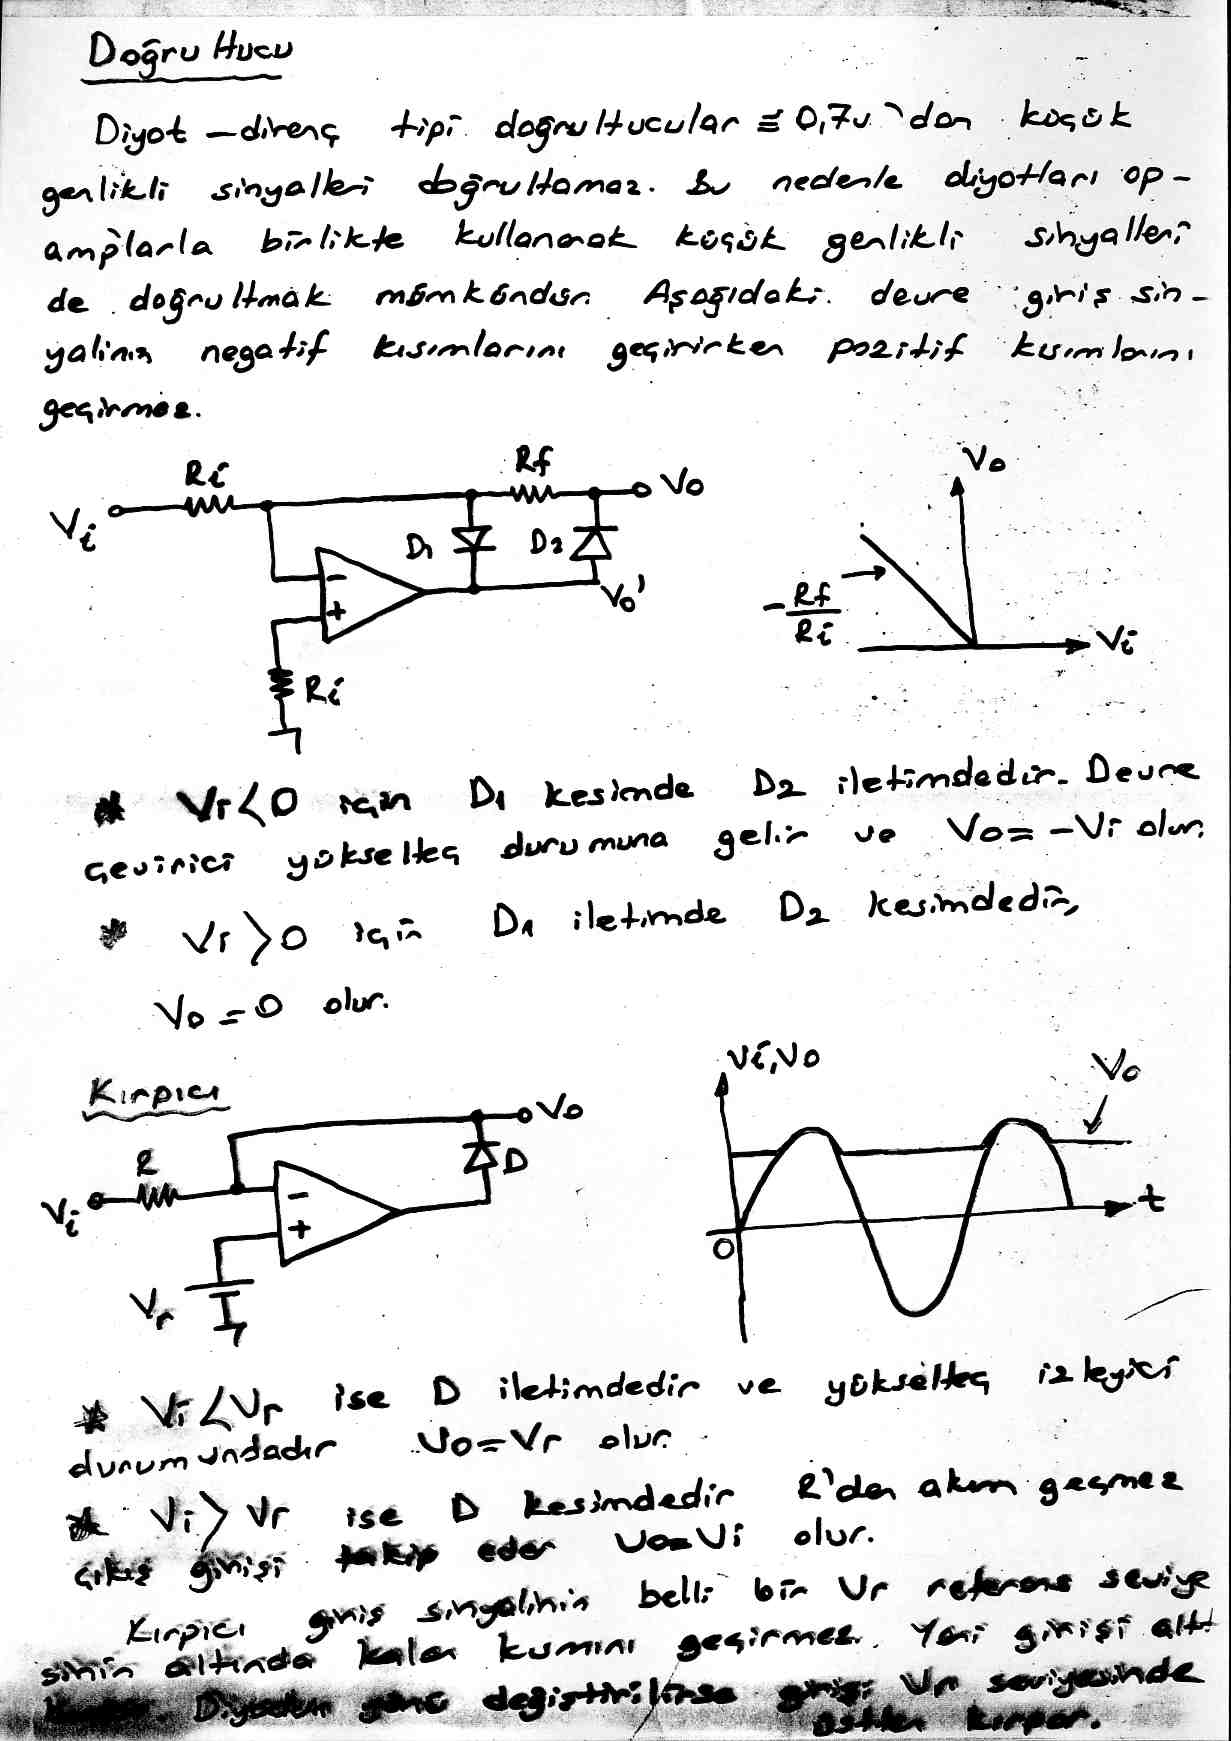 Doğrultucu
Diyot-direnç tipi doğrultucular ≅ 0,7v'dan küçük
genlikli sinyalleri doğrultamaz. Bu nedenle diyotları op-
amp'larla birlikte kullanarak küçük genlikli sinyalleri
de doğrultmak mümkündür. Aşağıdaki devre giriş sin-
yalinin negatif kısımlarını geçirirken pozitif kısımlarını
geçirmez.
Ri
Rf
Vo
Vi
D1
D2
-
+
Vo'
Ri
Vo
-Rf/Ri
Vi
* Vi<0 için D1 kesimde D2 iletimdedir. Devre
çevirici yükselteç durumuna gelir ve Vo=-Vi olur.
* Vi>0 için D1 iletimde D2 kesimdedir,
Vo=0 olur.
Kırpıcı
Vo
R
D
Vi
-
+
Vr
Vi,Vo
Vo
t
0
* Vi<Vr ise D iletimdedir ve yükselteç izleyici
durumundadır Vo=Vr olur.
* Vi>Vr ise D kesimdedir R'den akım geçmez
çıkış girişi takip eder Vo=Vi olur.
Kırpıcı giriş sinyalinin belli bir Vr referans seviye
sinin altında kalan kısmını geçirmez. Yani girişi altt
Diyodun yönü değiştirilirse girişi Vr seviyesinde
üstten kırpar.